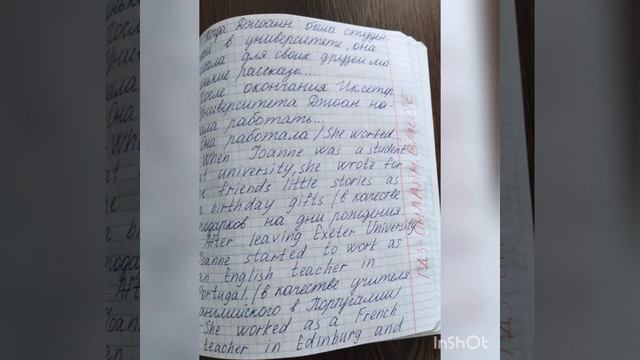 Когда Джоанн была студен-
в университете, она
для своих друзей ма-
рассказы...
После окончания Эксетер
Университета Джоан на-
работать...
Она работала / She worked
-When Joanne was a student
at university, she wrote for
friends little stories as
birthday gifts (в качестве
подарков на дни рождения
-After leaving Exeter University
Joanne started to work as
an English teacher in
Portugal. (в качестве учителя
английского в Португалии)
-She worked as a French
teacher in Edinburg and
ГДЗ-ОНЛАЙН ВМЕСТЕ
InShOt